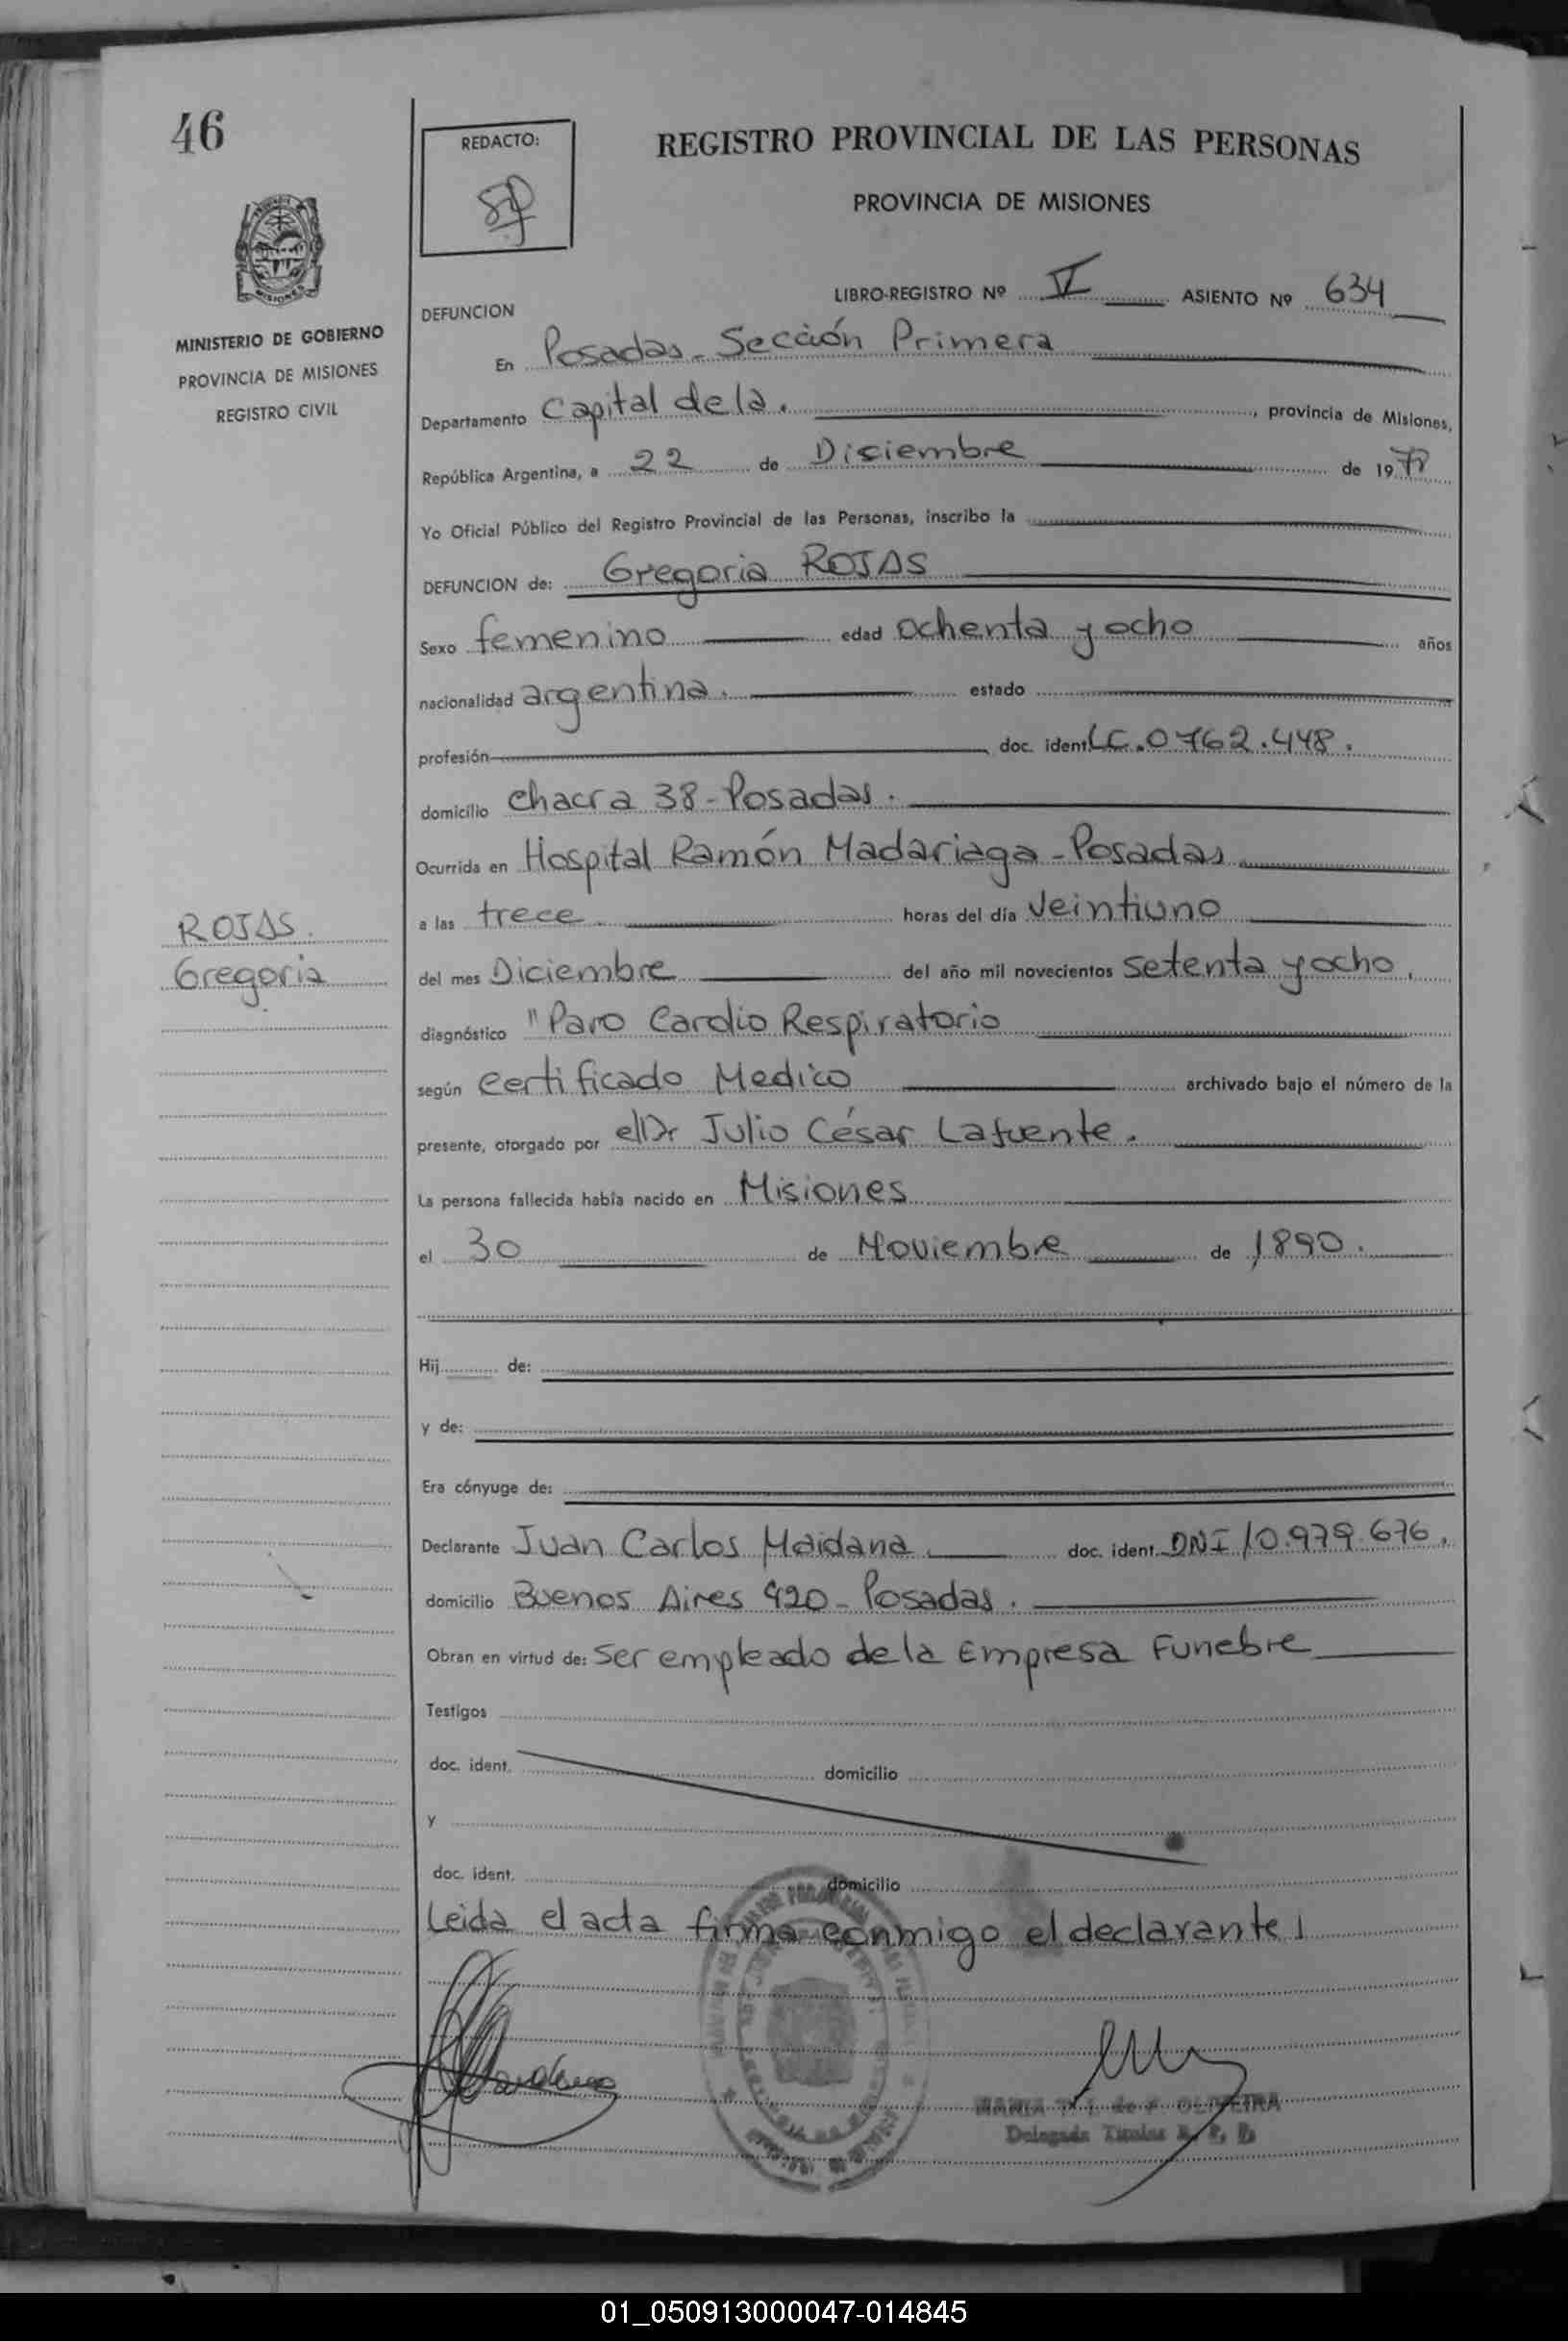 46
REDACTO:
REGISTRO PROVINCIAL DE LAS PERSONAS
PROVINCIA DE MISIONES
MISIONES
MINISTERIO DE GOBIERNO
PROVINCIA DE MISIONES
REGISTRO CIVIL
LIBRO-REGISTRO Nº V ASIENTO Nº 634
DEFUNCION
En Posadas - Sección Primera
Departamento Capital de la. , provincia de Misiones,
República Argentina, a 22 de Diciembre de 1978
Yo Oficial Público del Registro Provincial de las Personas, inscribo la
DEFUNCION de: Gregoria ROJAS
Sexo femenino edad ochenta y ocho años
nacionalidad argentina. estado
profesión doc. ident. LC. 0762.448.
domicilio Chacra 38 - Posadas.
Ocurrida en Hospital Ramón Madariaga - Posadas
a las trece. horas del día Veintiuno
ROJAS.
Gregoria
del mes Diciembre del año mil novecientos setenta y ocho,
diagnóstico "Paro Cardio Respiratorio
según Certificado Medico archivado bajo el número de la
presente, otorgado por el Dr Julio César Lafuente.
La persona fallecida había nacido en Misiones
el 30 de Noviembre de 1890.
Hij de:
y de:
Era cónyuge de:
Declarante Juan Carlos Maidana. doc. ident. DNI 10.979.676.
domicilio Buenos Aires 920 - Posadas.
Obran en virtud de: Ser empleado de la Empresa Funebre
Testigos
doc. ident. domicilio
y
doc. ident. domicilio
Leida el acta firma conmigo el declarante
MARIA OLIVEIRA
Delegada Titular R. P. P.
01_050913000047-014845